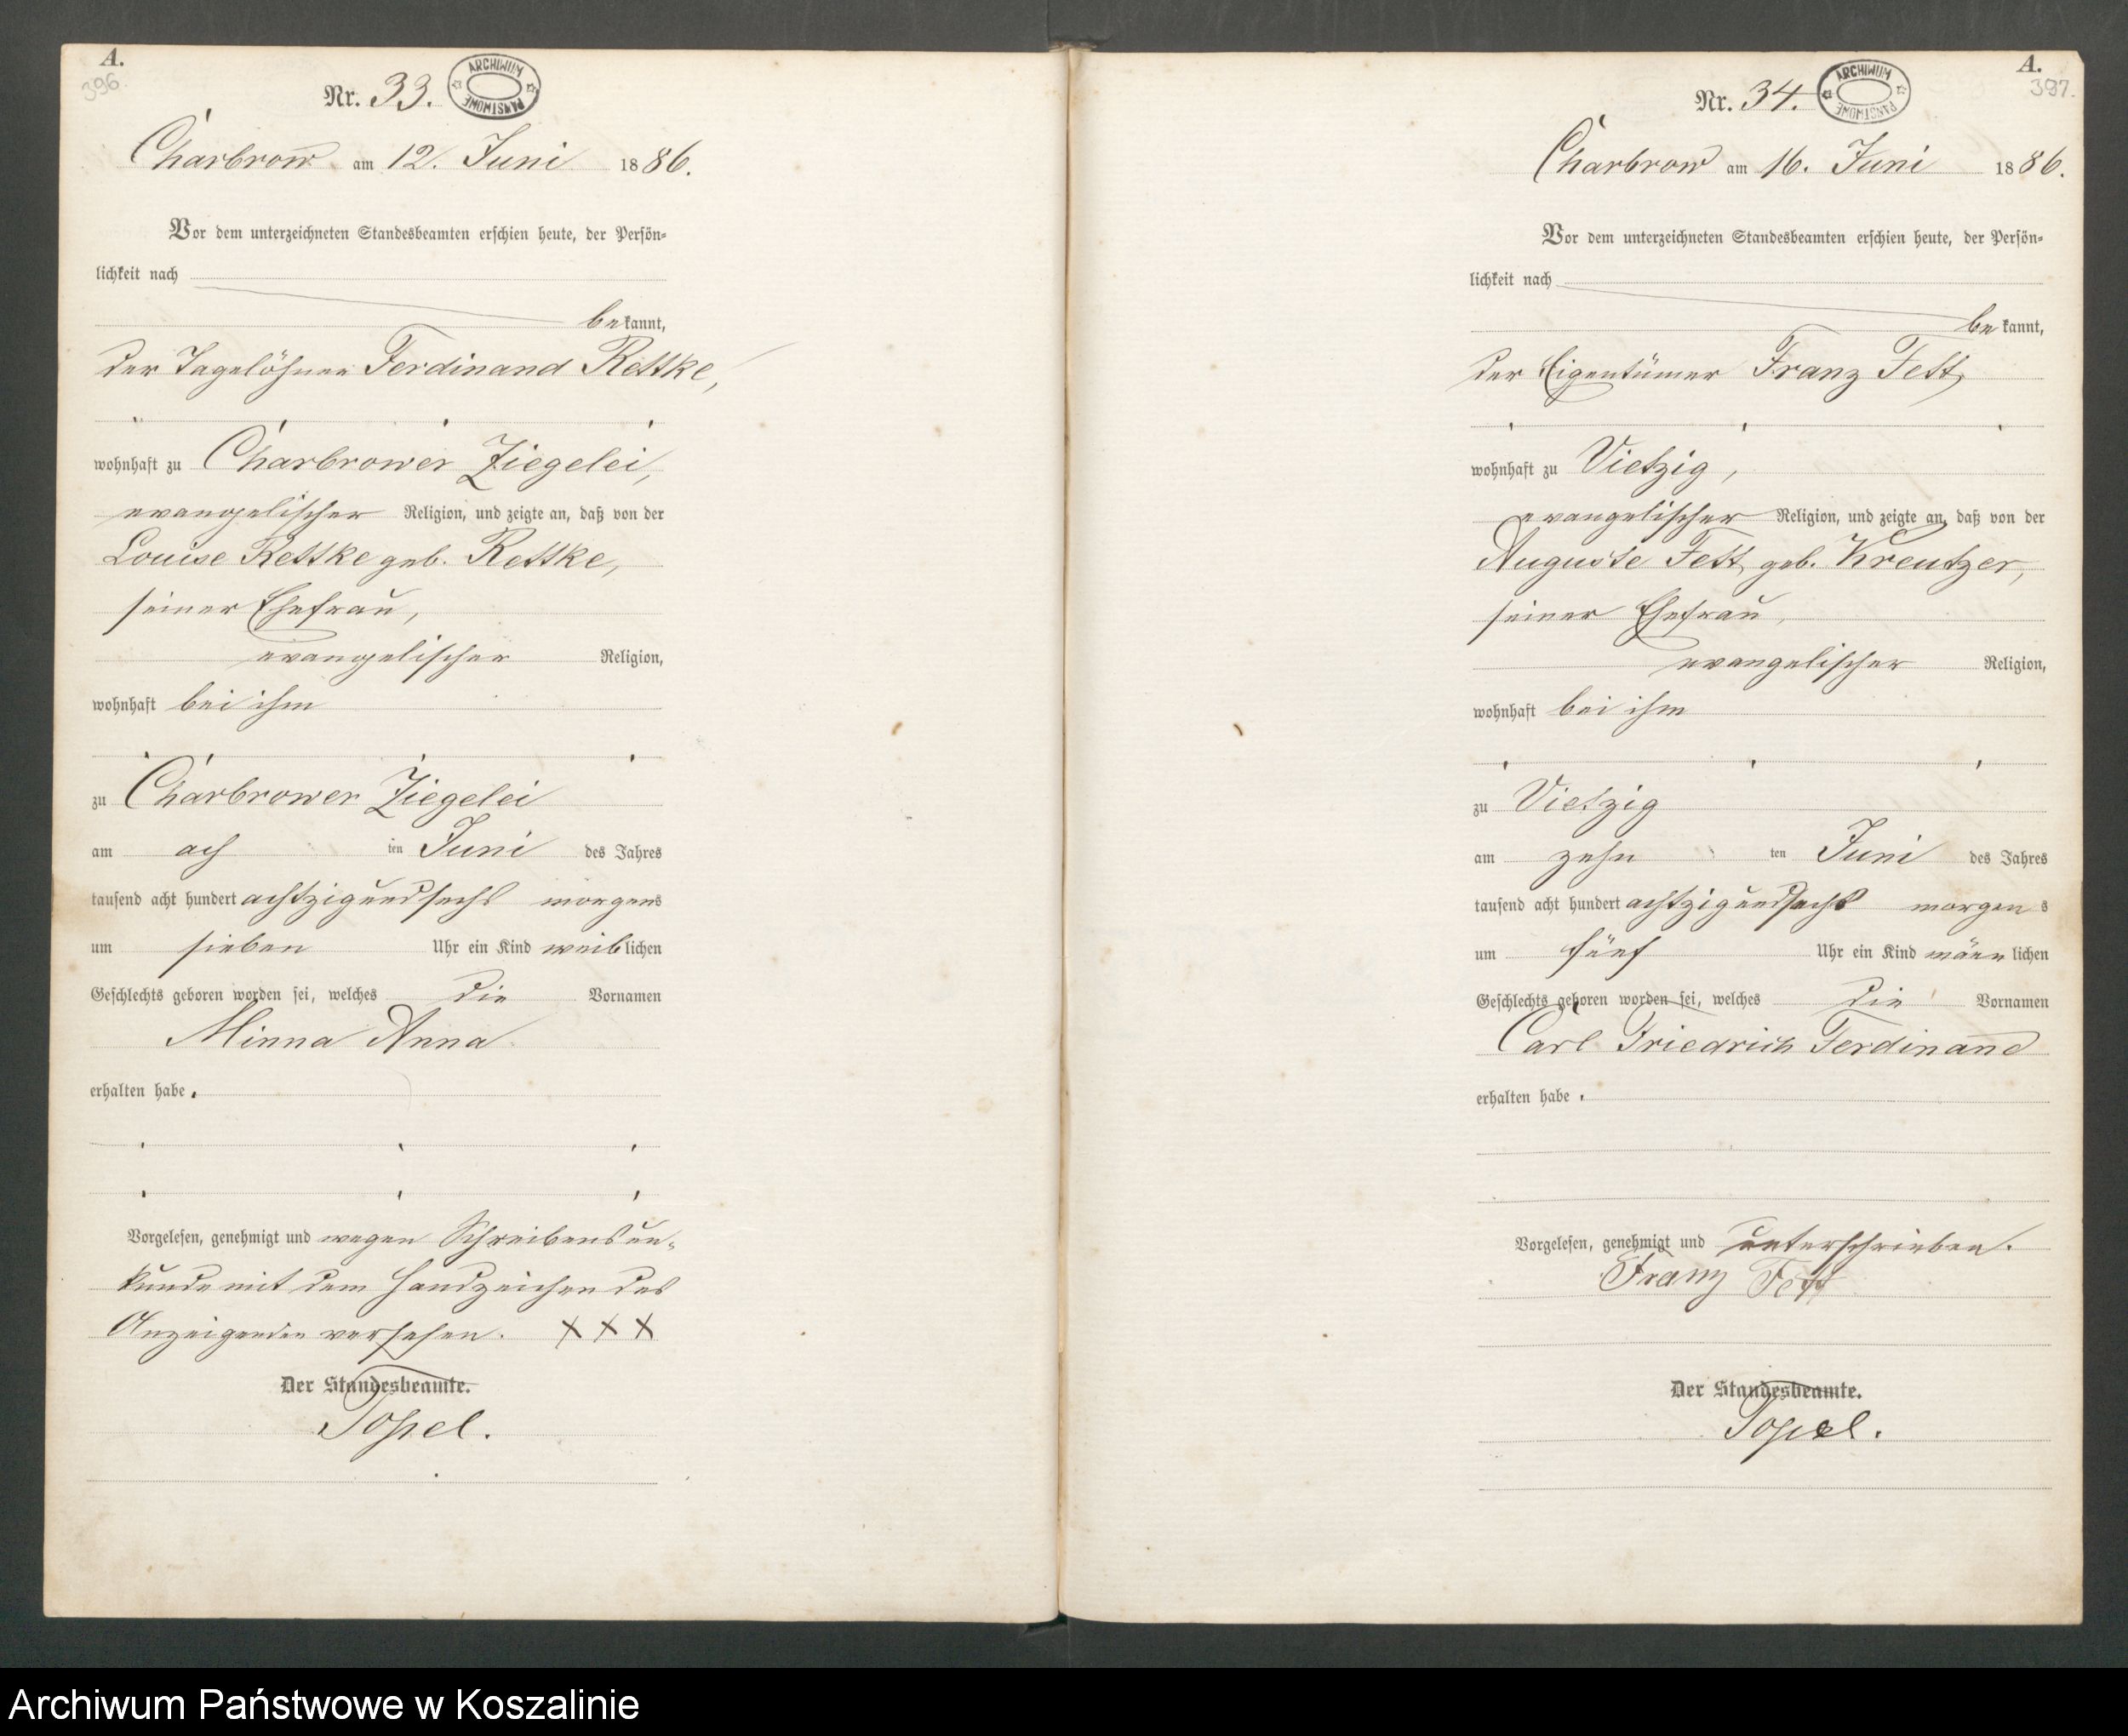 A.
396.
Nr. 33.
ARCHIWUM PAŃSTWOWE
Charbrow am 12. Juni 1886.
Vor dem unterzeichneten Standesbeamten erschien heute, der Persön-
lichkeit nach
bekannt,
der Tagelöhner Ferdinand Rettke,
wohnhaft zu Charbrower Ziegelei,
evangelischer Religion, und zeigte an, daß von der
Louise Rettke geb. Rettke,
seiner Ehefrau,
evangelischer Religion,
wohnhaft bei ihm
zu Charbrower Ziegelei
am ach ten Juni des Jahres
tausend acht hundert achtzigundsechs morgens
um sieben Uhr ein Kind weiblichen
Geschlechts geboren worden sei, welches die Vornamen
Minna Anna
erhalten habe.
Vorgelesen, genehmigt und wegen Schreibensun-
kunde mit dem Handzeichen des
Anzeigenden versehen. XXX
Der Standesbeamte.
Topel.
A.
397.
Nr. 34.
ARCHIWUM PAŃSTWOWE
Charbrow am 16. Juni 1886.
Vor dem unterzeichneten Standesbeamten erschien heute, der Persön-
lichkeit nach
bekannt,
der Eigentümer Franz Fett,
wohnhaft zu Vietzig,
evangelischer Religion, und zeigte an, daß von der
Auguste Fett, geb. Kreutzer,
seiner Ehefrau,
evangelischer Religion,
wohnhaft bei ihm
zu Vietzig
am zehn ten Juni des Jahres
tausend acht hundert achtzigundsechs morgens
um fünf Uhr ein Kind männlichen
Geschlechts geboren worden sei, welches die Vornamen
Carl Friedrich Ferdinand
erhalten habe.
Vorgelesen, genehmigt und unterschrieben.
Franz Fett
Der Standesbeamte.
Topel.
Archiwum Państwowe w Koszalinie